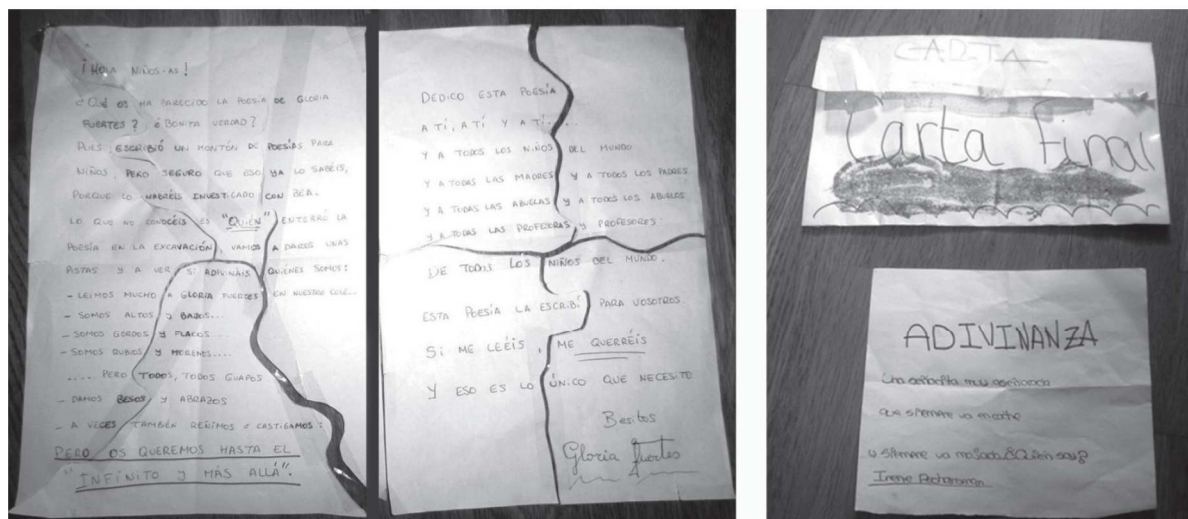 ¡HOLA NIÑOS-AS!
¿QUÉ OS HA PARECIDO LA POESÍA DE GLORIA
FUERTES? ¿BONITA VERDAD?
PUES ESCRIBIÓ UN MONTÓN DE POESÍAS PARA
NIÑOS, PERO SEGURO QUE ESO YA LO SABÉIS,
PORQUE LO HABRÉIS INVESTIGADO CON BEA.
LO QUE NO CONOCÉIS ES "QUIÉN" ENTERRÓ LA
POESÍA EN LA EXCAVACIÓN, VAMOS A DAROS UNAS
PISTAS Y A VER SI ADIVINÁIS QUIÉNES SOMOS:
- LEIMOS MUCHO A GLORIA FUERTES EN NUESTRO COLE...
- SOMOS ALTOS Y BAJOS...
- SOMOS GORDOS Y FLACOS...
- SOMOS RUBIOS Y MORENOS....
.... PERO TODOS, TODOS GUAPOS
- DAMOS BESOS Y ABRAZOS
- A VECES TAMBIÉN REÑIMOS O CASTIGAMOS:
PERO OS QUEREMOS HASTA EL
"INFINITO Y MÁS ALLÁ".
DEDICO ESTA POESÍA
A TÍ, A TÍ Y A TÍ....
Y A TODOS LOS NIÑOS DEL MUNDO
Y A TODAS LAS MADRES Y A TODOS LOS PADRES
Y A TODAS LAS ABUELAS Y A TODOS LOS ABUELOS
Y A TODAS LAS PROFESORAS Y PROFESORES
DE TODOS LOS NIÑOS DEL MUNDO.
ESTA POESÍA LA ESCRIBÍ PARA VOSOTROS
SI ME LEÉIS, ME QUERRÉIS
Y ESO ES LO ÚNICO QUE NECESITO
Besitos
Gloria Fuertes
CARTA
Carta Final
ADIVINANZA
Una señorita muy aseñorada
que siempre va en coche
y siempre va mojada ¿Quién soy?
Irene